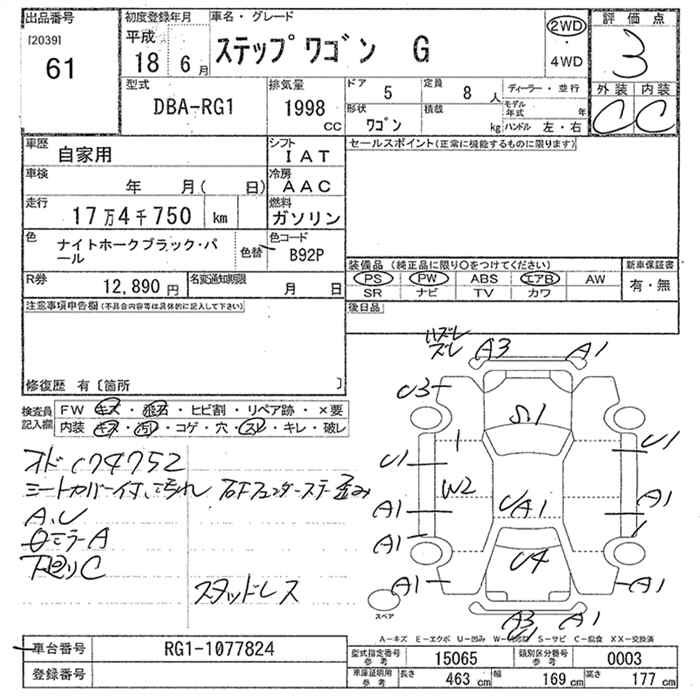 出品番号
[2039]
61
初度登録年月
平成
18 6月
車名・グレード
ステップワゴン G
2WD
・
4WD
評価点
3
外装 内装
C C
型式
DBA-RG1
排気量
1998
CC
ドア
5
定員
8 人
形状
ワゴン
積載
kg
ディーラー・並行
モデル年式 年
ハンドル 左・右
車歴
自家用
シフト
IAT
車検
年 月( 日)
冷房
AAC
走行
17万4千750 km
燃料
ガソリン
色
ナイトホークブラック・パ
ール
色替
色コード
B92P
R券
12,890 円
名変通知期限
月 日
セールスポイント(正常に機能するものに限ります)
装備品(純正品に限り○をつけてください)
PS PW ABS エアB AW
SR ナビ TV カワ
新車保証書
有・無
後日品
注意事項申告欄(不具合内容等は具体的に記入して下さい)
修復歴 有〔箇所 〕
検査員
記入欄
FW キズ・飛石・ヒビ割・リペア跡・×要
内装 キズ・汚れ・コゲ・穴・スレ・キレ・破レ
オド 174752
シートカバー付、汚れ 右Fフェンダーステー歪み
A、U
ミラーA
下廻りC
スタッドレス
ハズレ
ズレ
A3 A1
U3
S.1
U1 U1
W2
A1 U/A1 A1
A1
U4
A1 A1
スペア
A3 A1
A-キズ E-エクボ U-凹み W-凹 S-サビ C-腐食 XX-交換済
車台番号
RG1-1077824
登録番号
型式指定番号
参考
15065
類別区分番号
参考
0003
車庫証明用
参考
長さ
463 cm
幅
169 cm
高さ
177 cm